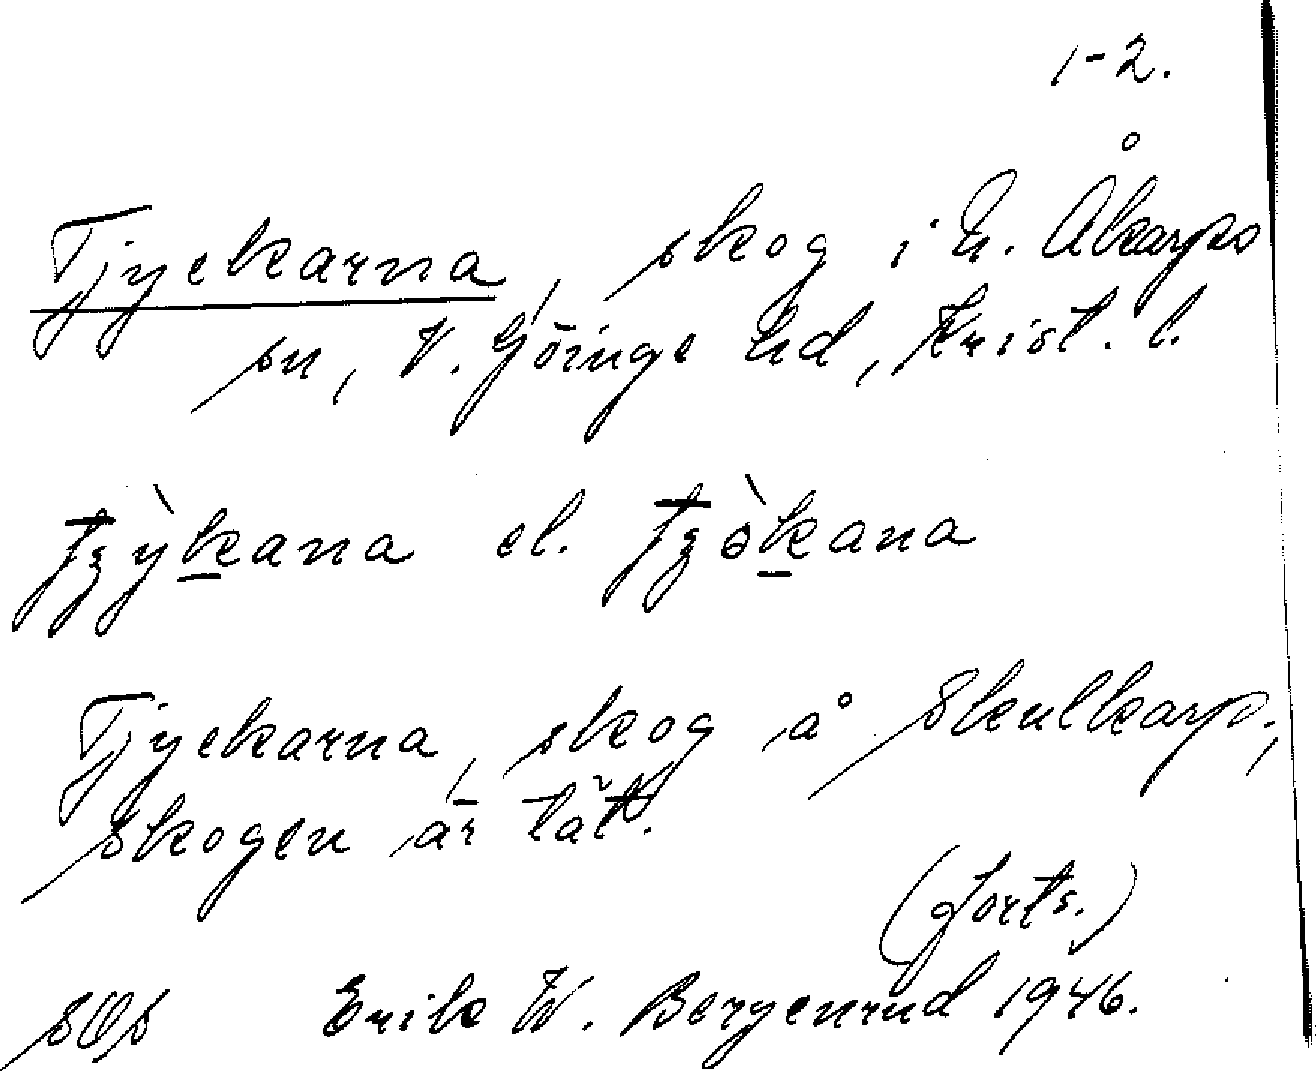 1-2.
Tjyckarna, skog i N. Åkarps
sn, V. Göinge hd, Krist. l.
el.
Tjyckarna, skog å Skulkarp;
skogen är tät.
(forts.)
Erik W. Bergenrud 1946.